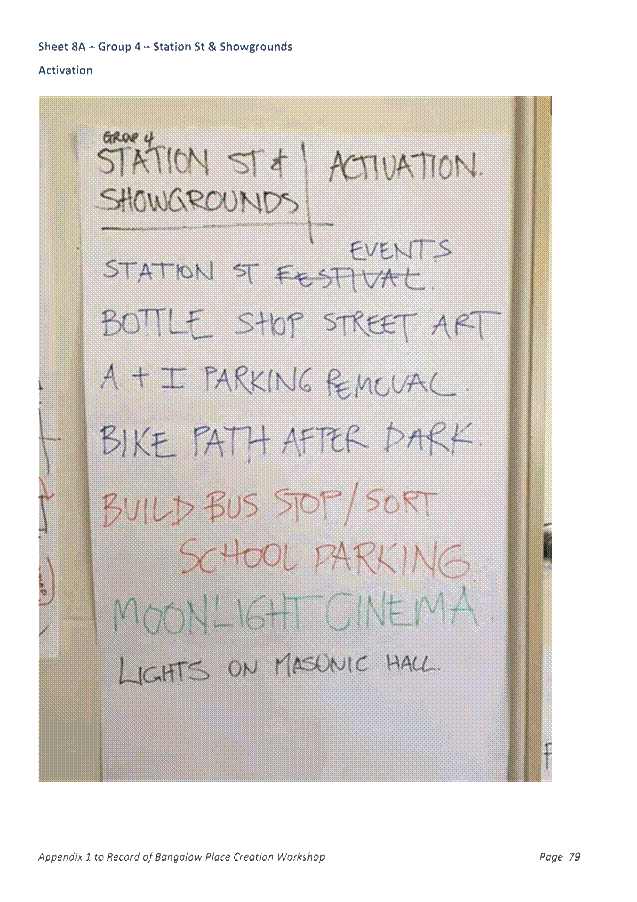 Sheet 8A – Group 4 – Station St & Showgrounds
Activation
GROUP 4
STATION ST & ACTIVATION.
SHOWGROUNDS
EVENTS
STATION ST FESTIVAL.
BOTTLE SHOP STREET ART
A + I PARKING REMOVAL.
BIKE PATH AFTER DARK.
BUILD BUS STOP / SORT
SCHOOL PARKING.
MOONLIGHT CINEMA.
LIGHTS ON MASONIC HALL.
Appendix 1 to Record of Bangalow Place Creation Workshop Page 79